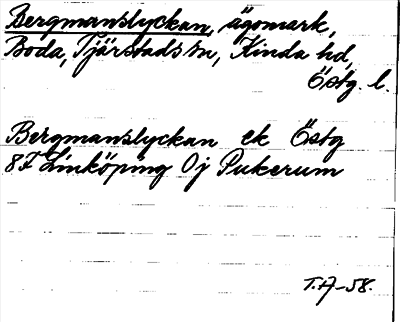 Bergmanslyckan, ägomark,
Boda, Tjärstads sn, Kinda hd,
Östg. l.
Bergmanslyckan ek Östg
8F Linköping 0j Pukerum
T.A-58.